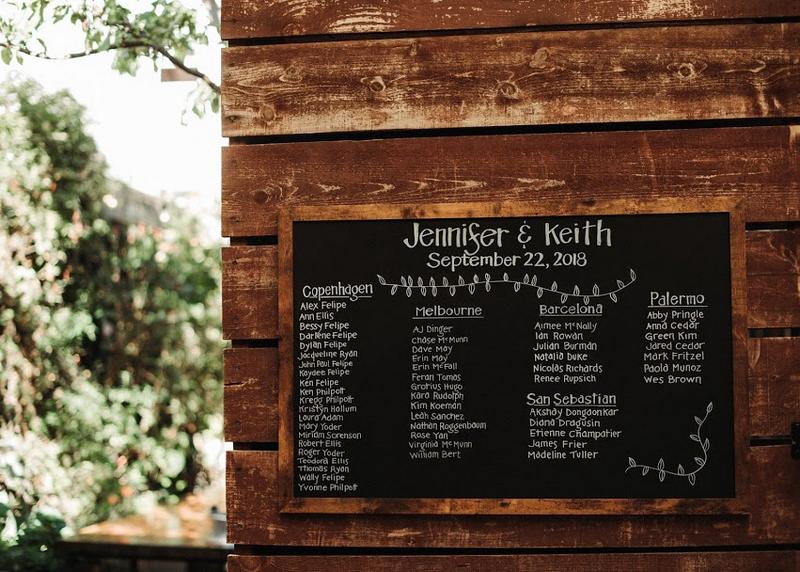 Jennifer & Keith
September 22, 2018
Copenhagen
Alex Felipe
Ann Ellis
Bessy Felipe
Darlene Felipe
Dylan Felipe
Jacqueline Ryan
John Paul Felipe
Kaydee Felipe
Ken Felipe
Ken Philpott
Kregg Philpott
Kristyn Hallum
Laura Adam
Mary Yoder
Miriam Sorenson
Robert Ellis
Roger Yoder
Teodora Ellis
Thomas Ryan
Wally Felipe
Yvonne Philpott
Melbourne
AJ Dinger
Chase McMunn
Dave May
Erin May
Erin McFall
Feran Tomas
Grotius Hugo
Kara Rudolph
Kim Koeman
Leah Sanchez
Nathan Roggenbaum
Rose Yan
Virginia McMunn
William Bert
Barcelona
Aimee McNally
Ian Rowan
Julian Burman
Natalia Duke
Nicolas Richards
Renee Rupsich
San Sebastian
Akshay Dongaonkar
Diana Dragusin
Etienne Champatier
James Frier
Madeline Tuller
Palermo
Abby Pringle
Anna Cedar
Green Kim
Jared Cedar
Mark Fritzel
Paola Munoz
Wes Brown